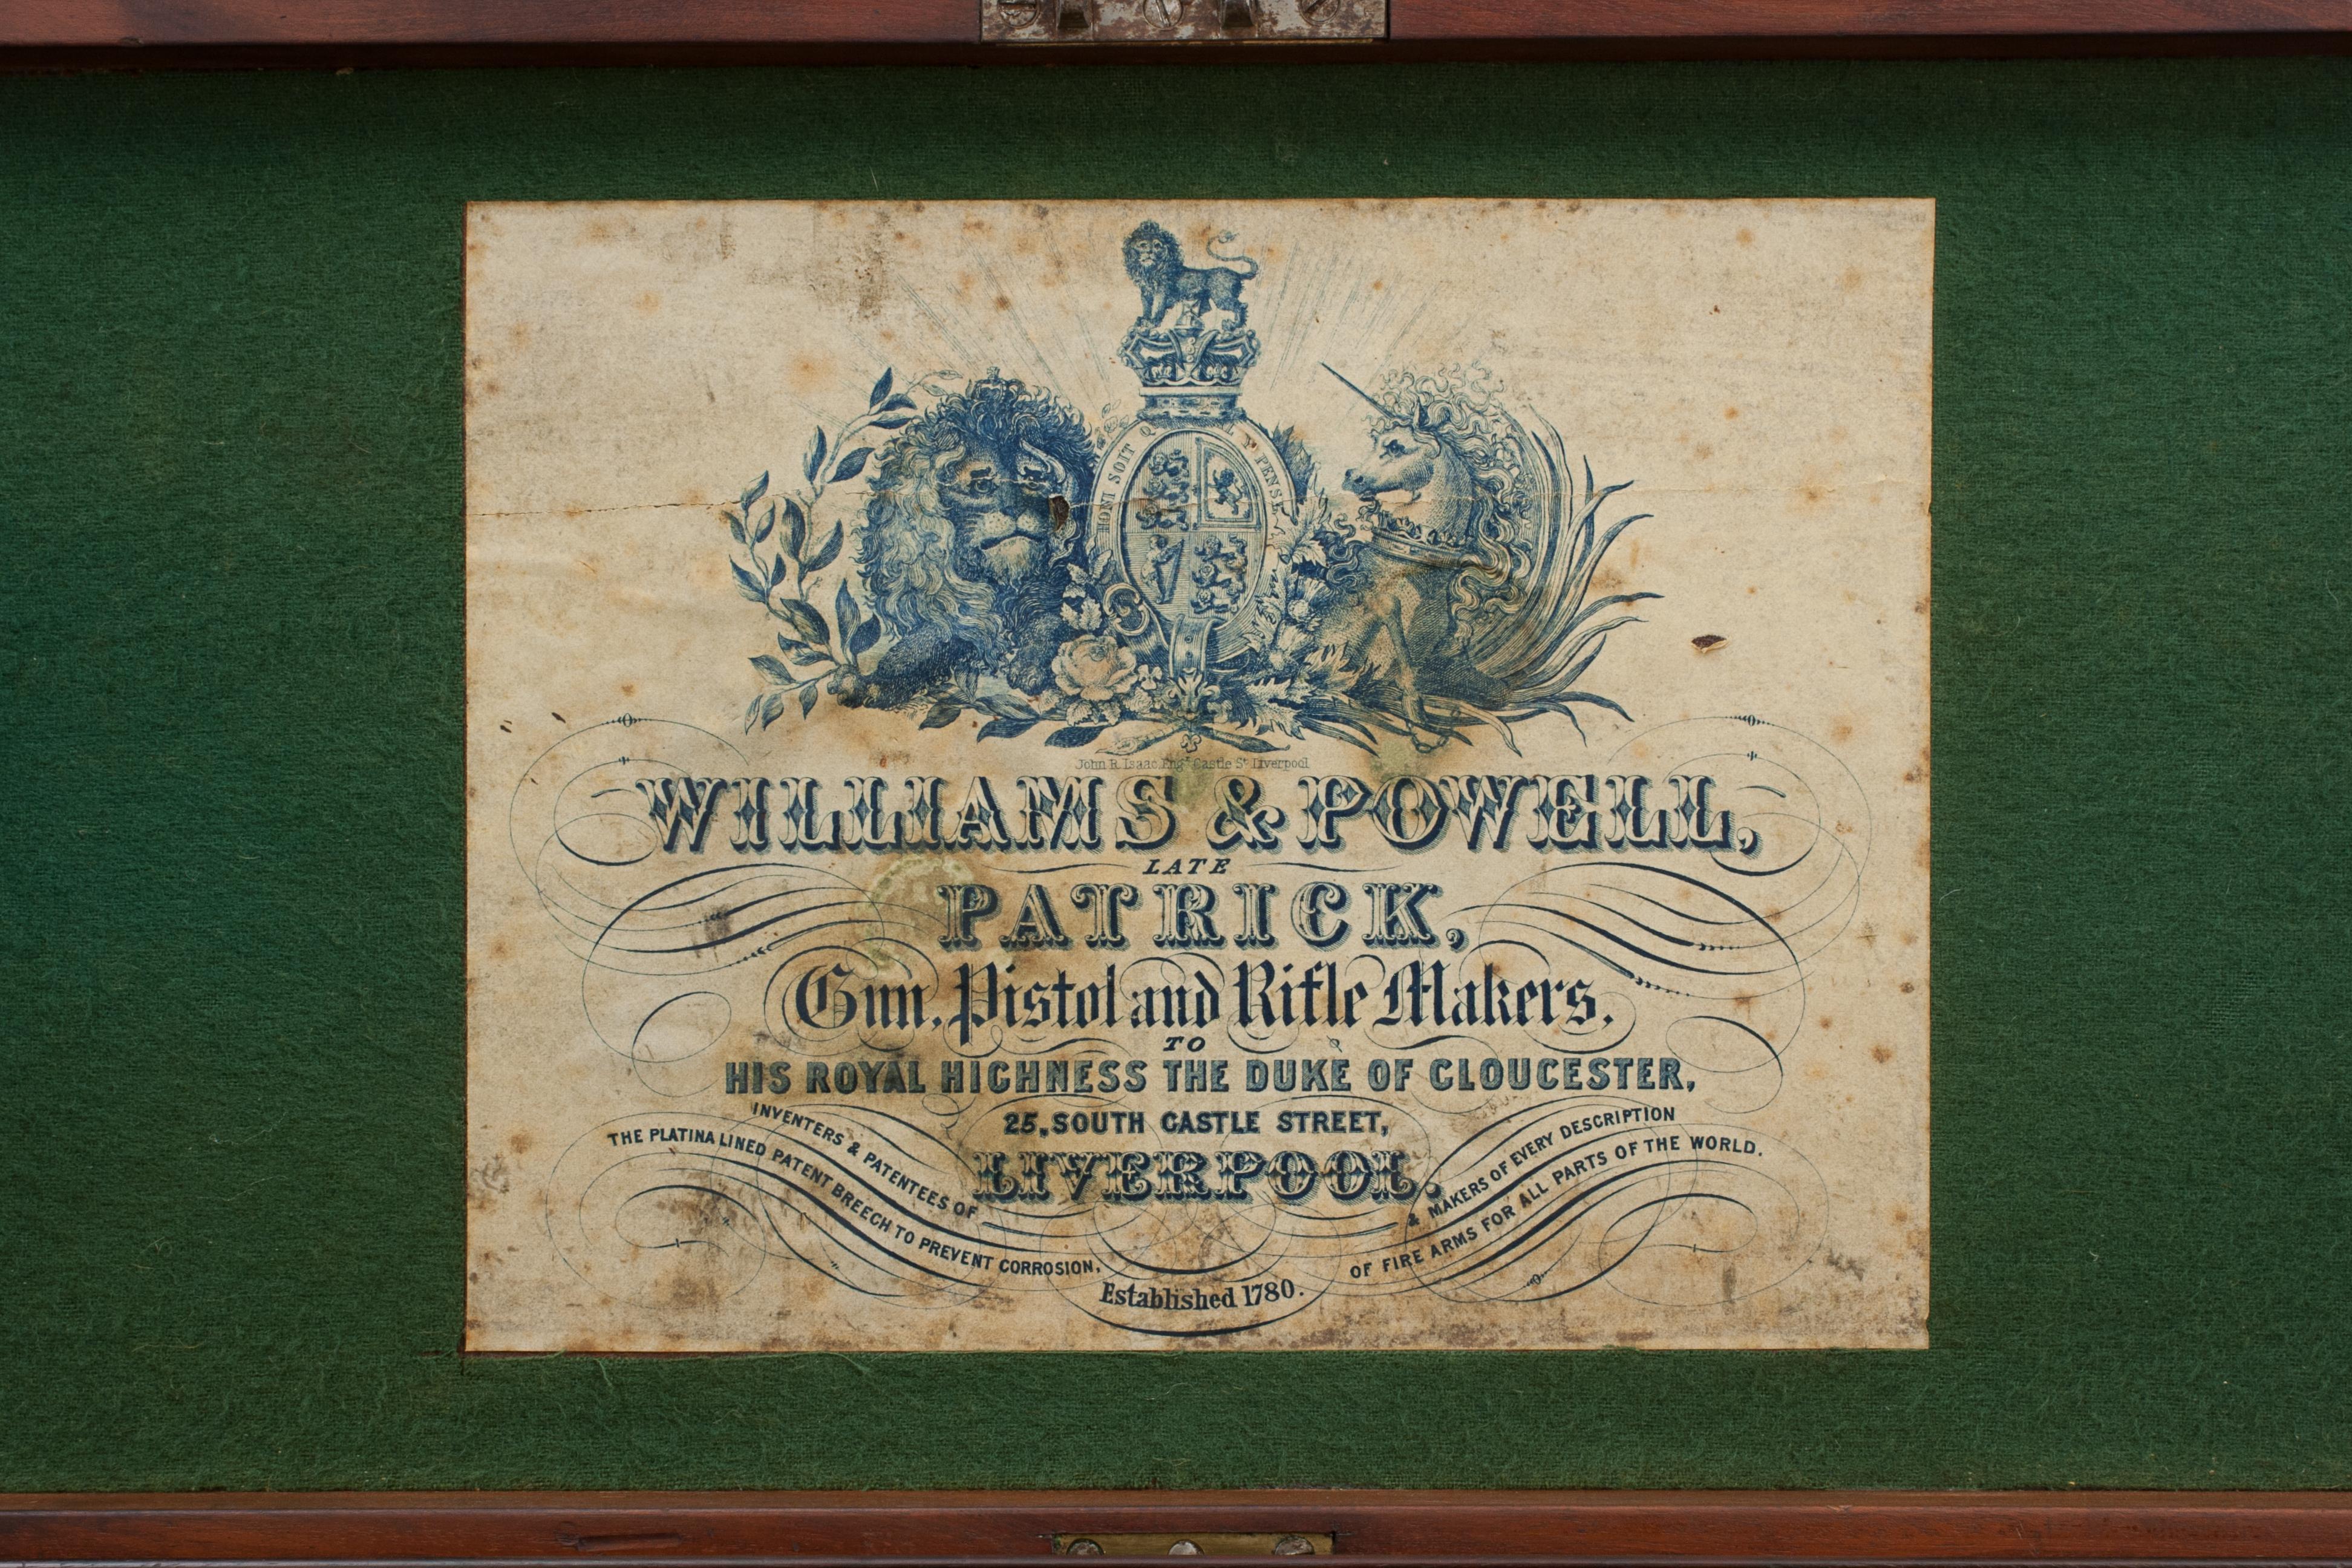 HONI SOIT Q Y PENSE
John R. Isaac, Engr. Castle St. Liverpool
WILLIAMS & POWELL,
LATE
PATRICK,
Gun, Pistol and Rifle Makers,
TO
HIS ROYAL HIGHNESS THE DUKE OF GLOUCESTER,
25, SOUTH CASTLE STREET,
LIVERPOOL.
INVENTERS & PATENTEES OF
THE PLATINA LINED PATENT BREECH TO PREVENT CORROSION,
& MAKERS OF EVERY DESCRIPTION
OF FIRE ARMS FOR ALL PARTS OF THE WORLD.
Established 1780.